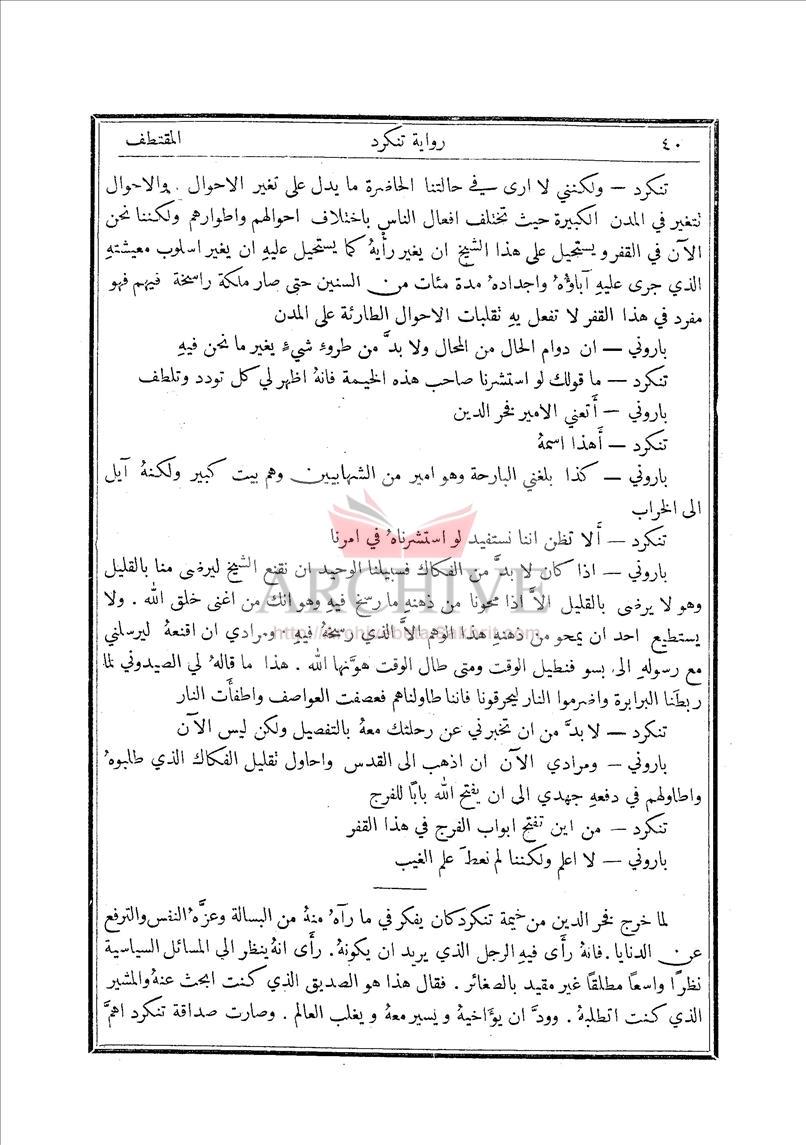 ٤٠ رواية تنكرد المقتطف
تنكرد — ولكنني لا ارى في حالتنا الحاضرة ما يدل على تغير الاحوال . والاحوال
لتغير في المدن الكبيرة حيث تختلف افعال الناس باختلاف احوالهم واطوارهم ولكننا نحن
الآن في القفر ويستحيل على هذا الشيخ ان يغير رأيهُ كما يستحيل عليهِ ان يغير اسلوب معيشتهِ
الذي جرى عليهِ آباؤهُ واجدادهُ مدة مئات من السنين حتى صار ملكة راسخة فيهم فهو
مفرد في هذا القفر لا تفعل بهِ تقلبات الاحوال الطارئة على المدن
باروني — ان دوام الحال من المحال ولا بدَّ من طروء شيءٍ يغير ما نحن فيهِ
تنكرد — ما قولك لو استشرنا صاحب هذه الخيمة فانهُ اظهر لي كل تودد وتلطف
باروني — أتعني الامير فخر الدين
تنكرد — أهذا اسمهُ
باروني — كذا بلغني البارحة وهو امير من الشهابيين وهم بيت كبير ولكنهُ آيل
الى الخراب
تنكرد — ألا تظن اننا نستفيد لو استشرناهُ في امرنا
باروني — اذا كان لا بدَّ من الفكاك فسبيلنا الوحيد ان نقنع الشيخ ليرضى منا بالقليل
وهو لا يرضى بالقليل الاَّ اذا محونا من ذهنهِ ما رسخ فيهِ وهو انك من اغنى خلق الله . ولا
يستطيع احد ان يمحو من ذهنهِ هذا الوهم الاَّ الذي رسخهُ فيهِ . ومرادي ان اقنعهُ ليرسلني
مع رسولهِ الى بسو فنطيل الوقت ومتى طال الوقت هوَّنها الله . هذا ما قالهُ لي الصيدوني لما
ربطَنا البرابرة واضرموا النار ليحرقونا فاننا طاولناهم فعصفت العواصف واطفأَت النار
تنكرد — لا بدَّ من ان تخبرني عن رحلتك معهُ بالتفصيل ولكن ليس الآن
باروني — ومرادي الآن ان اذهب الى القدس واحاول تقليل الفكاك الذي طلبوهُ
واطاولهم في دفعهِ جهدي الى ان يفتح الله بابًا للفرج
تنكرد — من اين تفتح ابواب الفرج في هذا القفر
باروني — لا اعلم ولكننا لم نعطَ علم الغيب
لما خرج فخر الدين من خيمة تنكرد كان يفكر في ما رآهُ منهُ من البسالة وعزَّة النفس والترفع
عن الدنايا . فانهُ رأَى فيهِ الرجل الذي يريد ان يكونهُ . رأَى انهُ ينظر الى المسائل السياسية
نظرًا واسعًا مطلقًا غير مقيد بالصغائر . فقال هذا هو الصديق الذي كنت ابحث عنهُ والمشير
الذي كنت اتطلبهُ . وودَّ ان يؤَاخيهُ ويسير معهُ ويغلب العالم . وصارت صداقة تنكرد اهمَّ
ARCHIVE